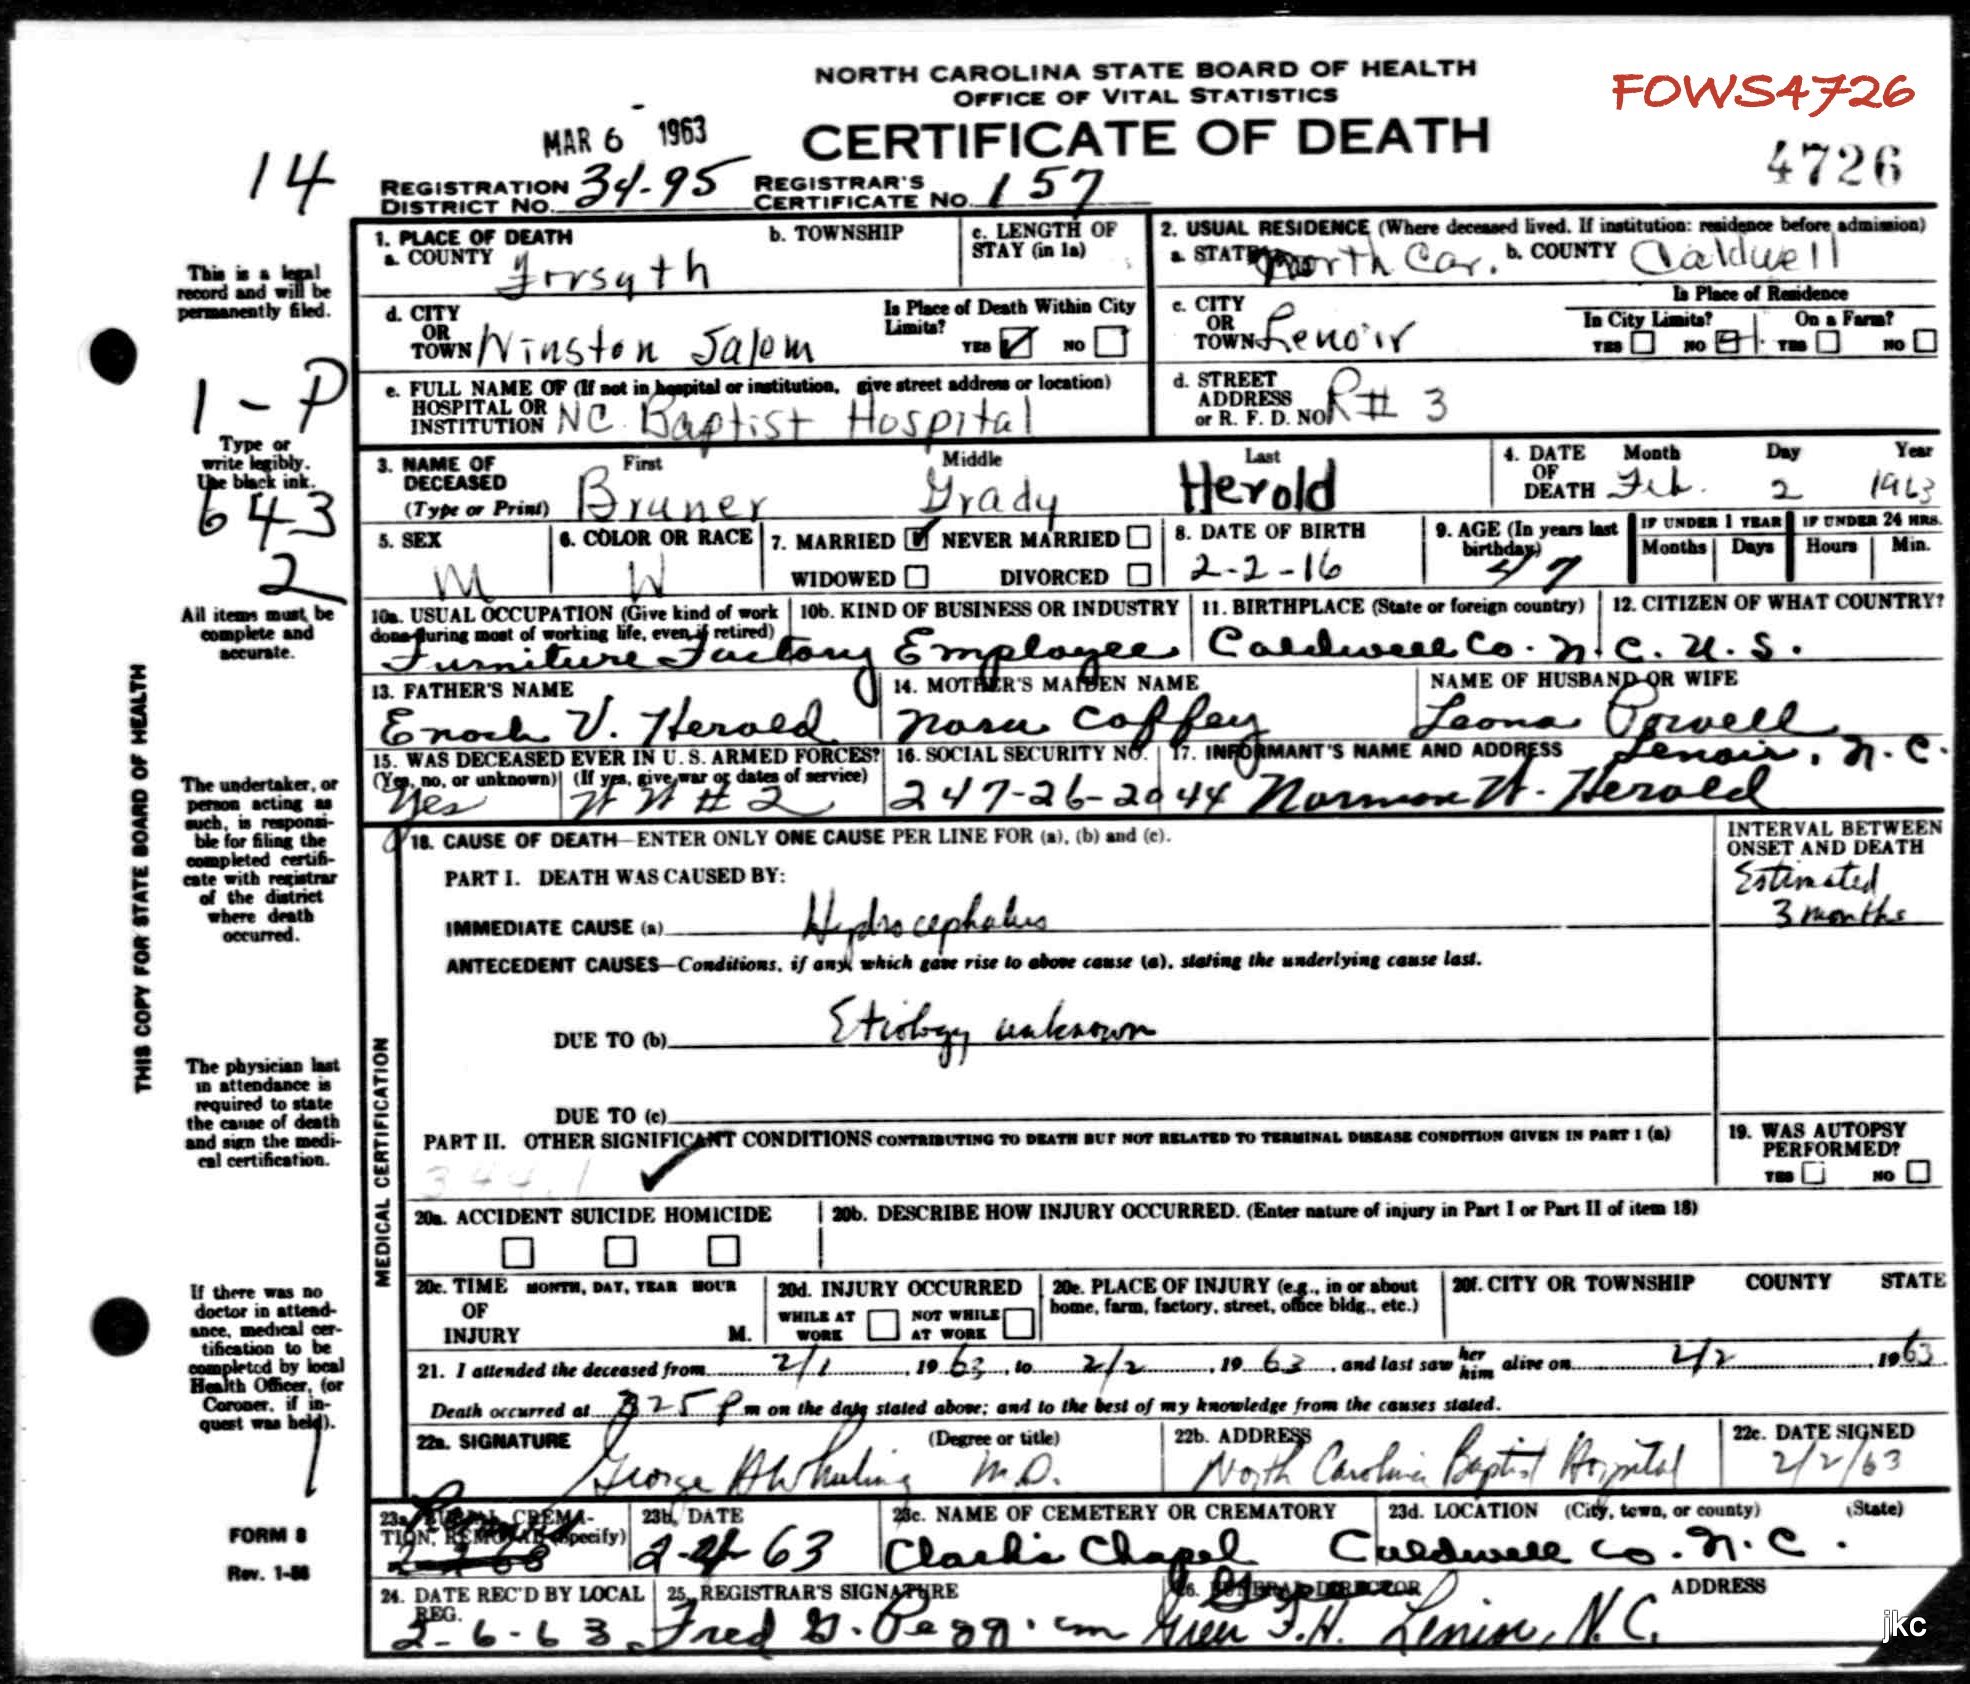 NORTH CAROLINA STATE BOARD OF HEALTH
OFFICE OF VITAL STATISTICS
FOWS4726
MAR 6 1963
CERTIFICATE OF DEATH
4726
14
REGISTRATION DISTRICT NO. 34-95 REGISTRAR'S CERTIFICATE NO. 157
This is a legal
record and will be
permanently filed.
1-P
Type or
write legibly.
Use black ink.
643
2
All items must be
complete and
accurate.
THIS COPY FOR STATE BOARD OF HEALTH
The undertaker, or
person acting as
such, is responsi-
ble for filing the
completed certifi-
cate with registrar
of the district
where death
occurred.
The physician last
in attendance is
required to state
the cause of death
and sign the medi-
cal certification.
If there was no
doctor in attend-
ance, medical cer-
tification to be
completed by local
Health Officer, (or
Coroner, if in-
quest was held).
1
FORM 8
Rev. 1-56
1. PLACE OF DEATH
a. COUNTY Forsyth
b. TOWNSHIP
c. LENGTH OF
STAY (in 1a)
2. USUAL RESIDENCE (Where deceased lived. If institution: residence before admission)
a. STATE North Car. b. COUNTY Caldwell
d. CITY
OR
TOWN Winston Salem
Is Place of Death Within City
Limits?
YES NO
c. CITY
OR
TOWN Lenoir
Is Place of Residence
In City Limits? On a Farm?
YES NO YES NO
e. FULL NAME OF (If not in hospital or institution, give street address or location)
HOSPITAL OR
INSTITUTION NC Baptist Hospital
d. STREET
ADDRESS
or R. F. D. NO. R # 3
3. NAME OF
DECEASED
(Type or Print)
First Middle Last
Bruner Grady Herold
4. DATE
OF
DEATH
Month Day Year
Feb. 2 1963
5. SEX
M
6. COLOR OR RACE
W
7. MARRIED NEVER MARRIED
WIDOWED DIVORCED
8. DATE OF BIRTH
2-2-16
9. AGE (In years last
birthday)
47
IF UNDER 1 YEAR IF UNDER 24 HRS.
Months Days Hours Min.
10a. USUAL OCCUPATION (Give kind of work
done during most of working life, even if retired)
10b. KIND OF BUSINESS OR INDUSTRY
Furniture Factory Employee
11. BIRTHPLACE (State or foreign country)
Caldwell Co. N.C.
12. CITIZEN OF WHAT COUNTRY?
U.S.
13. FATHER'S NAME
Enoch V. Herold
14. MOTHER'S MAIDEN NAME
Nora Coffey
NAME OF HUSBAND OR WIFE
Leona Powell
15. WAS DECEASED EVER IN U. S. ARMED FORCES?
(Yes, no, or unknown) (If yes, give war or dates of service)
Yes W W # 2
16. SOCIAL SECURITY NO.
247-26-2044
17. INFORMANT'S NAME AND ADDRESS Lenoir, N.C.
Norman W. Herold
MEDICAL CERTIFICATION
18. CAUSE OF DEATH—ENTER ONLY ONE CAUSE PER LINE FOR (a), (b) and (c).
INTERVAL BETWEEN
ONSET AND DEATH
PART I. DEATH WAS CAUSED BY:
IMMEDIATE CAUSE (a) Hydrocephalus
Estimated
3 months
ANTECEDENT CAUSES—Conditions, if any, which gave rise to above cause (a), stating the underlying cause last.
DUE TO (b) Etiology unknown
DUE TO (c)
PART II. OTHER SIGNIFICANT CONDITIONS CONTRIBUTING TO DEATH BUT NOT RELATED TO TERMINAL DISEASE CONDITION GIVEN IN PART I (a)
344.1
19. WAS AUTOPSY
PERFORMED?
YES NO
20a. ACCIDENT SUICIDE HOMICIDE
20b. DESCRIBE HOW INJURY OCCURRED. (Enter nature of injury in Part I or Part II of item 18)
20c. TIME MONTH, DAY, YEAR HOUR
OF
INJURY M.
20d. INJURY OCCURRED
WHILE AT NOT WHILE
WORK AT WORK
20e. PLACE OF INJURY (e.g., in or about
home, farm, factory, street, office bldg., etc.)
20f. CITY OR TOWNSHIP COUNTY STATE
21. I attended the deceased from 2/1, 1963, to 2/2, 1963, and last saw her him alive on 2/2, 1963
Death occurred at 325 P m on the date stated above; and to the best of my knowledge from the causes stated.
22a. SIGNATURE (Degree or title)
George M.D.
22b. ADDRESS
North Carolina Baptist Hospital
22c. DATE SIGNED
2/2/63
23a. BURIAL, CREMA-
TION, REMOVAL (Specify)
23b. DATE
2-4-63
23c. NAME OF CEMETERY OR CREMATORY
Clark's Chapel
23d. LOCATION (City, town, or county) (State)
Caldwell Co. N.C.
24. DATE REC'D BY LOCAL
REG.
2-6-63
25. REGISTRAR'S SIGNATURE
Fred G. Pegg
26. FUNERAL DIRECTOR ADDRESS
Greer F.H. Lenoir, N.C.
jkc